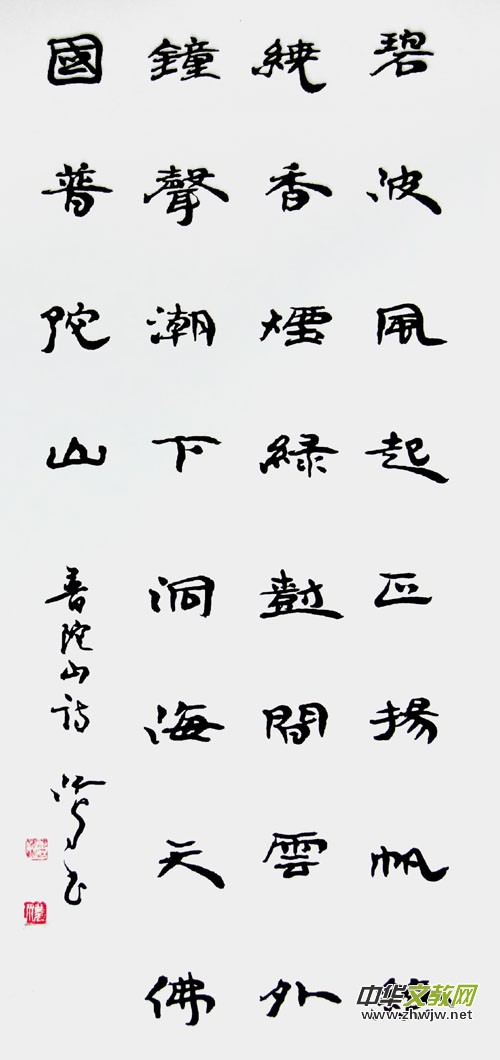 碧波風起正揚帆
繞香煙綠樹間雲外
鐘聲潮下洞海天佛
國普陀山
普陀山詩
中华文教网
www.zhwjw.net